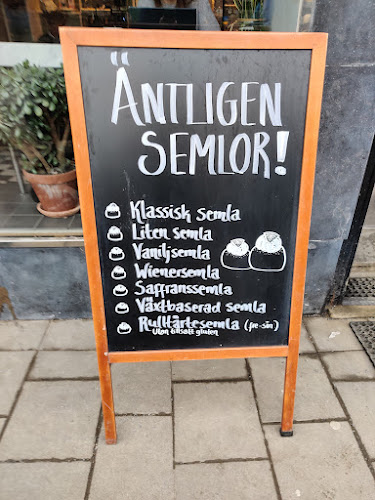 ÄNTLIGEN
SEMLOR!
Klassisk semla
Liten semla
Vaniljsemla
Wienersemla
Saffranssemla
Växtbaserad semla
Rulltårtesemla (fre-sön)
Utan tillsatt gluten